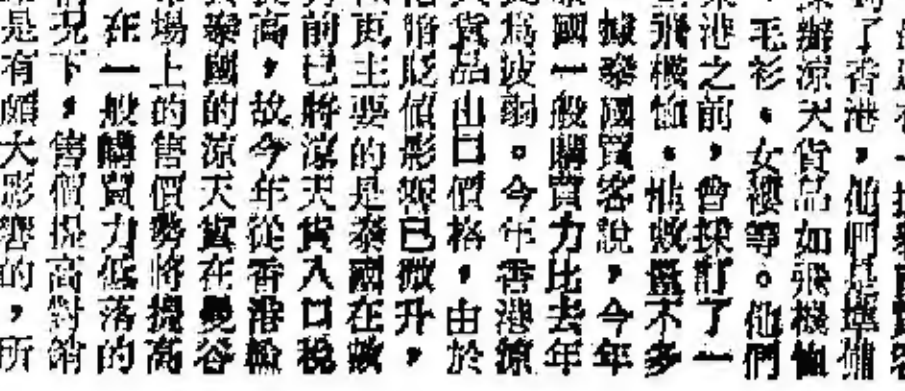 到了香港，他們是準備
採辦涼天貨品如飛機恤
、毛衫、女褸等。他們
來港之前，曾採訂了一
飛機恤，惟數量不多
據泰國買客說，今年
泰國一般購買力比去年
更爲疲弱。今年香港涼
貨品出口價格，由於
貶值影響已微升，
更主要的是泰國在
前已將涼天貨入口稅
提高，故今年從香港輸
泰國的涼天貨在曼谷
市場上的售價勢將提高
在一般購買力低落的
情况下，售價提高對銷
是有頗大影響的，所